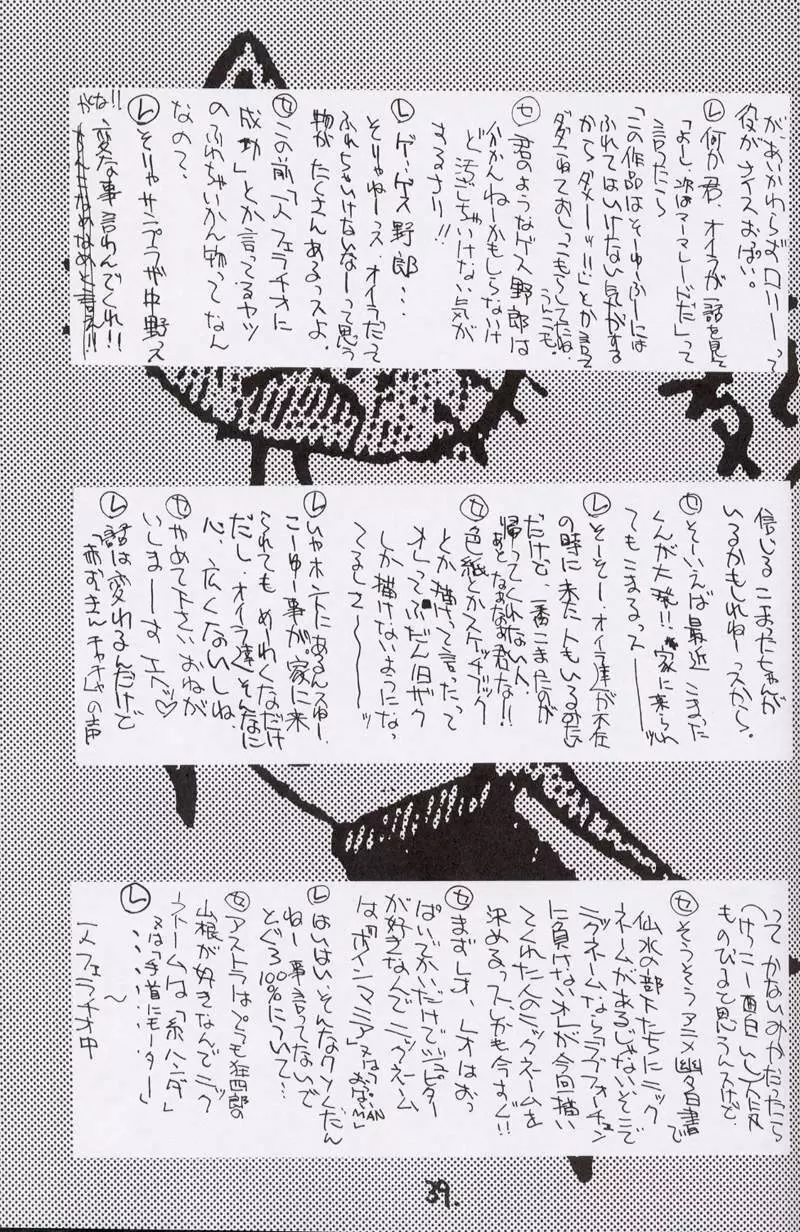 があいかわらずロリーって
役がナイスおっぱい。
Ⓛ何か君、オイラが話を見て
「よし、次はマーマレードだ」って
言ったら
「この作品はそーゆーふーには
ふれてはいけない気がする
からダメーッ!!」とか言って
ダダこねておしっこもらしてたね。
Ⓢ君のようなゲス野郎は
かかんねーかもしらないけ
ど汚しちゃいけない気が
するさり!!
Ⓛゲ、ゲス野郎…
そりゃねーっス、オイラだって
ふれちゃいけないなーって思う
物がたくさんあるっスよ。
Ⓢこの前「一人フェラチオに
成功」とか言ってるヤツ
のふれちゃいかん物ってなん
なの?
Ⓛそりゃサンプラザ中野っス
がな!!変な事言わんでくれ!!
信じるこまったちゃんが
いるかもしれねーっスから。
Ⓢそーいえば最近こまった
くんが大発!!家に来られ
てもこまるっスーーーッ
Ⓛそーそー、オイラ達が不在
の時に来た人もいるみたい
だけど、一番こまったのが
帰ってくれない人、
あとなぁなぁ君な!!
Ⓢ色紙とかスケッチブック
とか描けって言ったって
オレってふだん旧ザク
しか描けないようにな
てるしさーーーーッ
Ⓛいやホントにあるんスゆー、
こーゆー事が。家に来
られてもめーわくなだけ
だし、オイラ達そんなに
心、広くないしね。
Ⓢやめて下さいおねが
いしまーーす エへ♡
Ⓛ話は変わるんだけど
「赤ずきんチャチャ」の声
ってかないみかだったら
(けっこー面白いし)人気
ものびるて思うっスけど。
Ⓢそうそうアニメ幽白書で
仙水の部下たちにニック
ネームがあるじゃないそこで
ニックネームならラブフォーチュン
に負けないオレが今回描い
てくれた人のニックネームを
決めるっスしかも今すぐ!!
Ⓢまずレオ、レオはおっ
ぱいでかいだけでジュピター
が好きなんでニックネーム
は「ボインマニア」又は「おっぱいMAN」
Ⓛはいはい、そんなクソみたん
ねー事言ってないで
とぐろ100%について…
Ⓢアストラはぺっも狂四郎の
山根が好きなんでニック
ネームは「糸ハンダ」
又は「手首にモーター」
Ⓛ…………
一人フェラチオ中
〜
39.